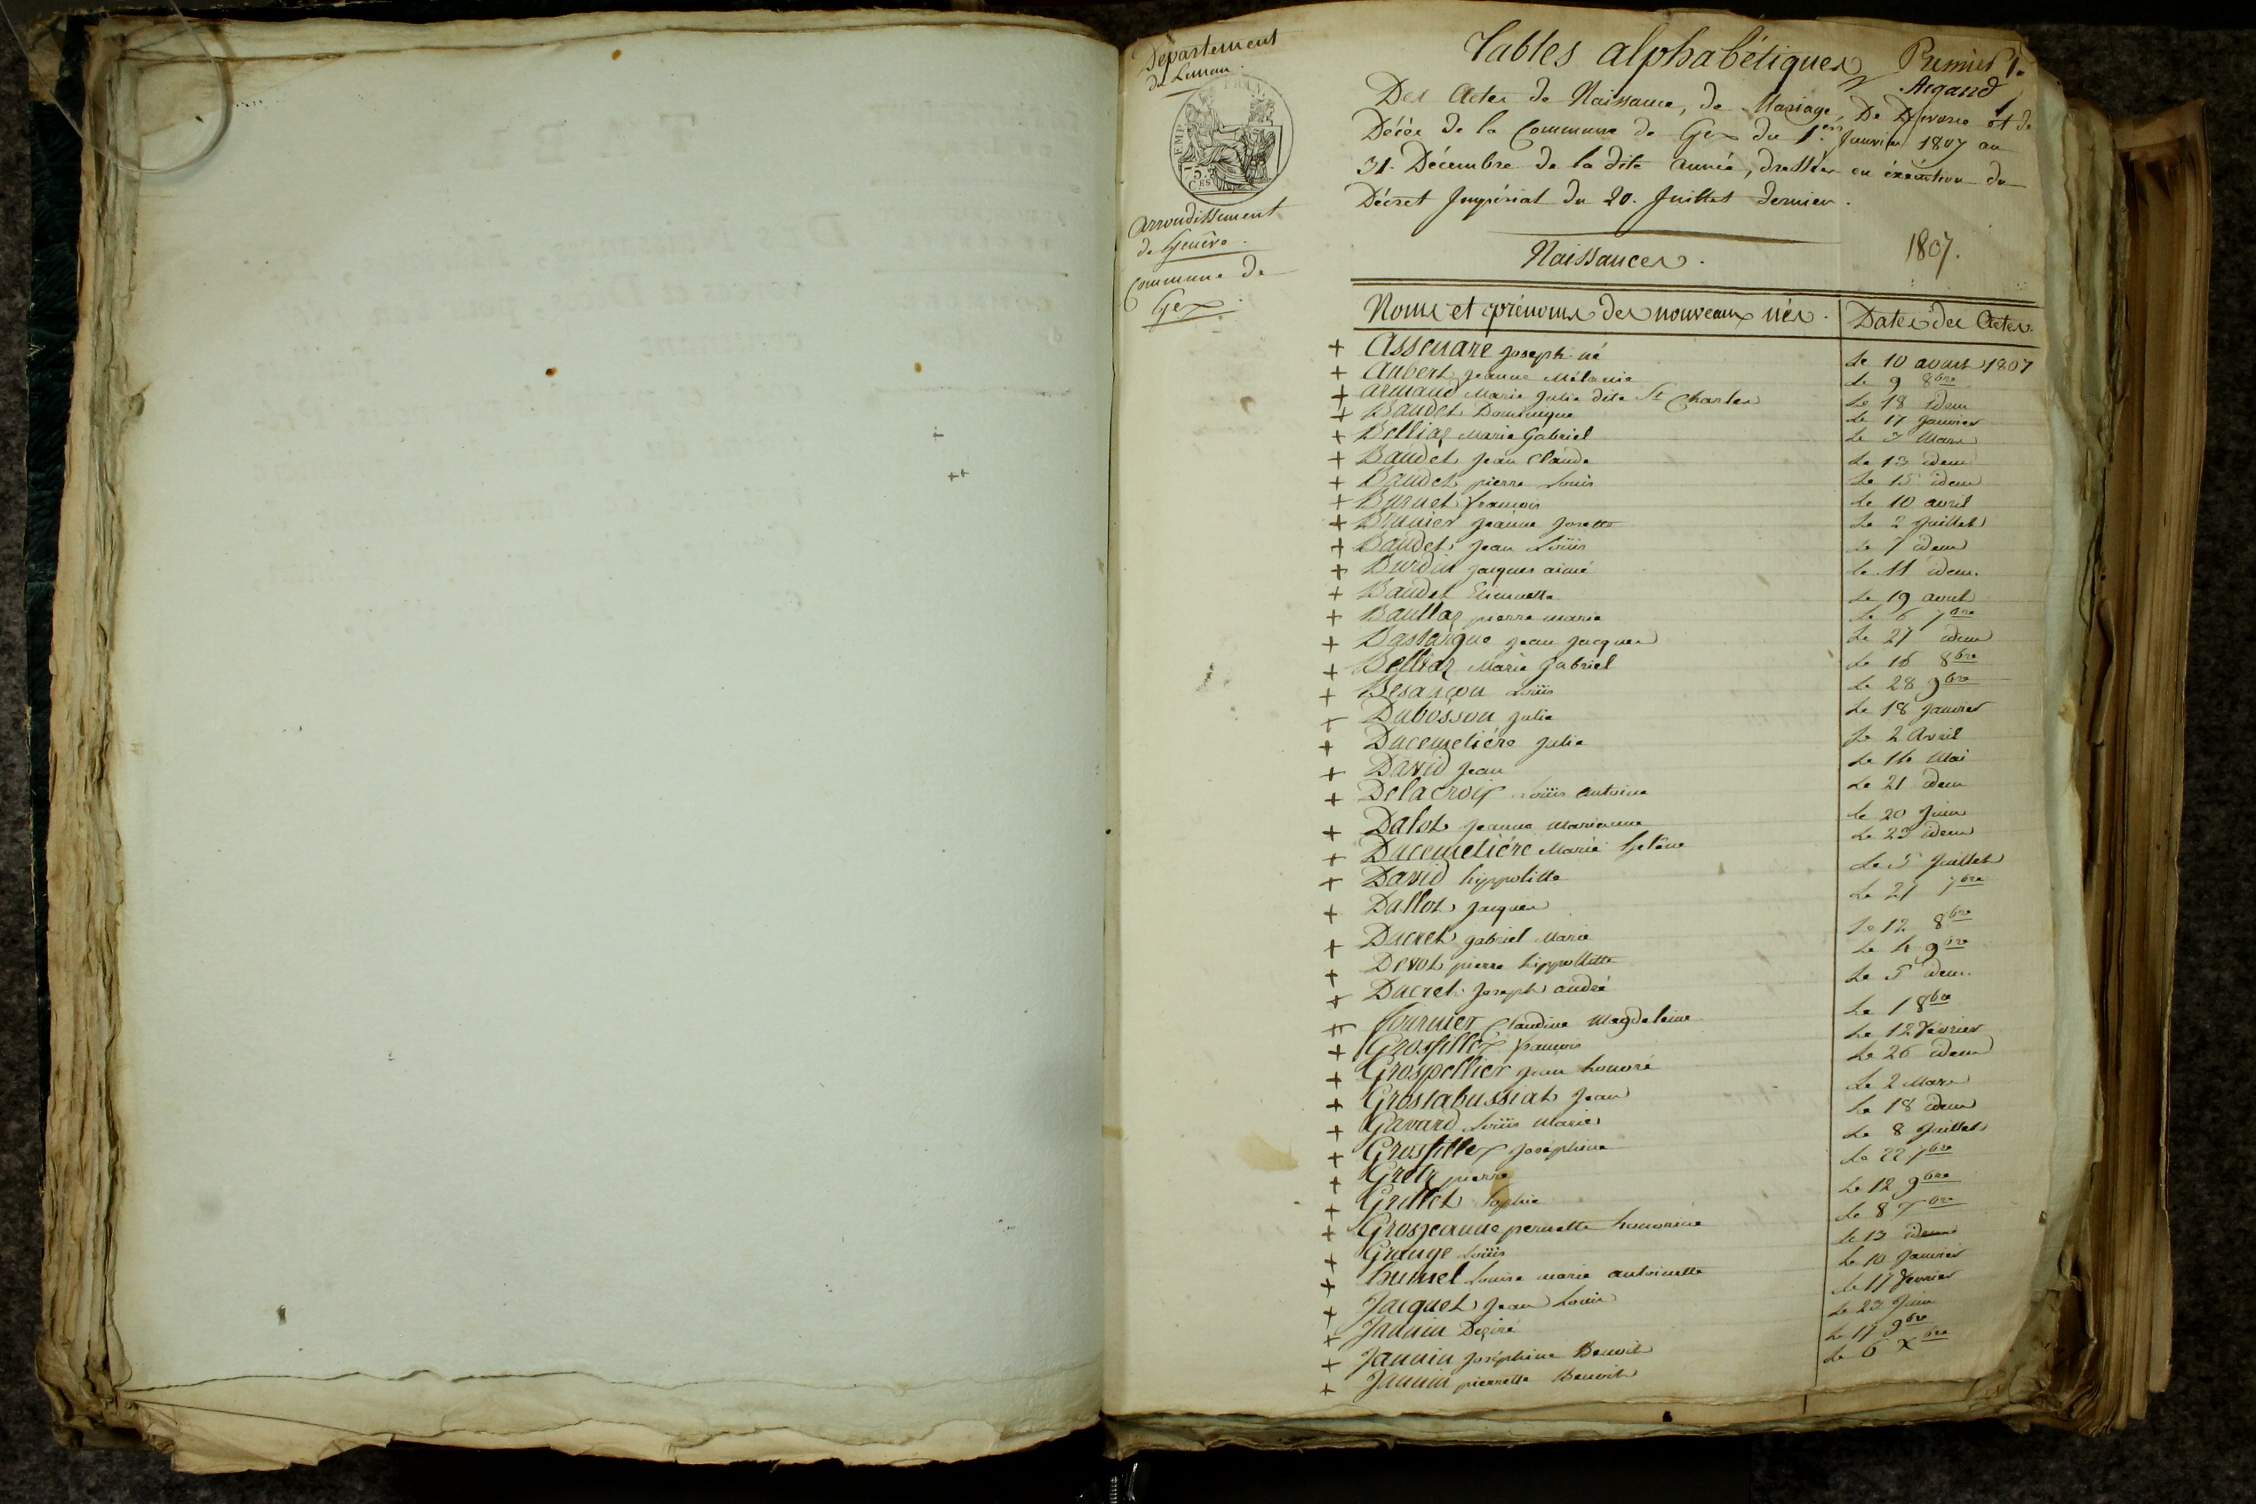 Département
du Leman.
EMP. FRAN.
75.
C.ES
Arrondissement
de Genève.
Commune de
Gex.
Tables alphabétiques
Premier 1.
Argand
Des Actes de Naissance, de Mariage, De Divorce et de
Décès de la Commune de Gex du 1.er Janvier 1807 au
31. Décembre de la dite année, dressées en éxécution du
Décret Impérial du 20. Juillet dernier.
Naissances.
1807.
Noms et prénoms des nouveaux nés. Dates des Actes.
+ Assenare Joseph né Le 10 avril 1807
+ Aubert Jeanne Mélanie Le 9 8bre
+ Armand Marie Julie dite St Charles Le 18 idem
+ Baudet Dominique Le 17 Janvier
+ Belliaz Marie Gabriel Le 7 Mars
+ Baudet Jean Claude Le 13 idem
+ Baudet pierre Louis Le 15 idem
+ François Le 10 avril
+ Brunier Jeanne Josette Le 2 Juillet
+ Baudet Jean Loüis Le 7 idem
+ Burdin Jacques aimé Le 11 idem.
+ Baudet Le 19 avril
+ pierre marie Le 6 7bre
+ Bassarque Jean Jacques Le 27 idem
+ Belliaz Marie Gabriel Le 16 8bre
+ Besançon Loüis Le 28 9bre
+ Dubosson Julie Le 18 Janvier
+ Ducemetiére Julie Le 2 Avril
+ David Jean Le 14 Mai
+ Delacroix Loüis antoine Le 21 idem
+ Dalot Jeanne Marianne Le 20 Juin
+ Ducemetiére Marie helène Le 23 idem
+ David hippolitte Le 5 Juillet
+ Dallot Jacques Le 21 7bre
+ Ducret gabriel Marie Le 12 8bre
+ Devot pierre hippolitte Le 4 9bre
+ Ducret Joseph andré Le 5 idem.
+ Fournier Claudine Magdeleine Le 1 8bre
+ Grosfillex François Le 12 Février
+ Grospellier Jean honoré Le 26 idem
+ Grostabussiat Jean Le 2 Mars
+ Gavard Loüis Marie Le 18 idem
+ Grosfillex Joséphine Le 8 Juillet
+ pierre Le 22 7bre
+ Grillet Sophie Le 12 9bre
+ Grosjeanne pernette honorine Le 8 7bre
+ Grange Loüis Le 13 idem
+ Louise marie antoinette Le 10 Janvier
+ Jacquet Jean Louis Le 17 Février
+ Jannin Dezirè Le 23 Juin
+ Jannin Joséphine Benoit Le 17 9bre
+ Jannin pierrette Benoit Le 6 Xbre